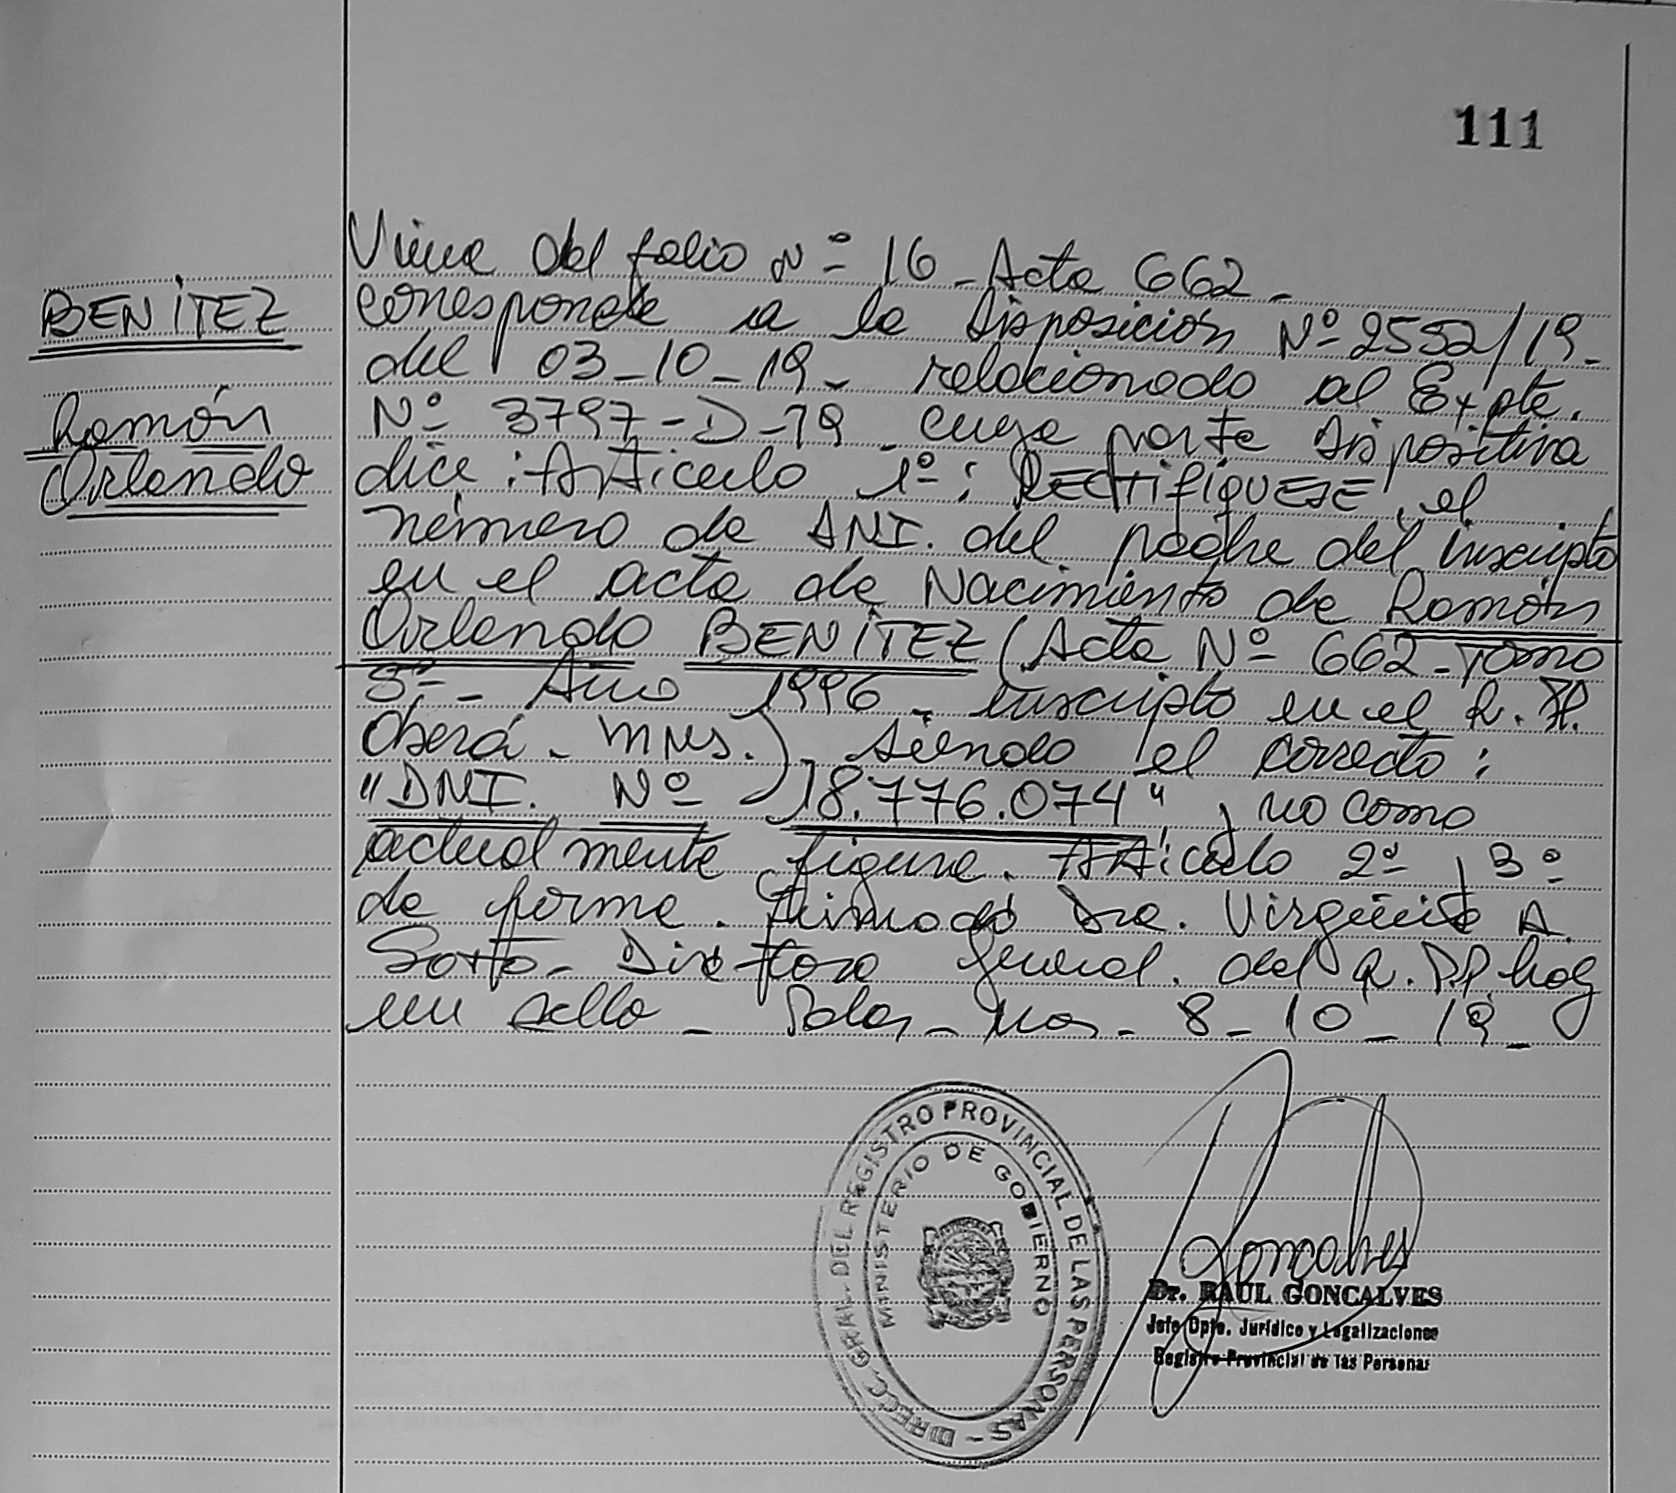 111
BENÍTEZ
Ramón
Orlando
Viene del folio Nº 16 - Acta 662 -
corresponde a la disposición Nº 2552/19 -
del 03-10-19 - relacionado al Expte.
Nº 3797-D-19 - cuya parte dispositiva
dice: Artículo 1º: RECTIFÍQUESE, el
número de DNI. del padre del inscripto
en el acta de Nacimiento de Ramón
Orlando BENÍTEZ (Acta Nº 662 - Tomo
3º - Año 1996 - inscripto en el R. P.
Oberá - Mnes.) siendo el correcto:
"DNI. Nº 18.776.074", y no como
actualmente figura. Artículo 2º y 3º
de forma. Firmado Dra. Virginia A.
Sotto - Directora General del R. PP. hay
un sello - Pdas - Mnes - 8-10-19 -
DIRECC. GRAL. DEL REGISTRO PROVINCIAL DE LAS PERSONAS -
MINISTERIO DE GOBIERNO
Goncalves
Dr. RAUL GONCALVES
Jefe Dpto. Jurídico y Legalizaciones
Registro Provincial de las Personas